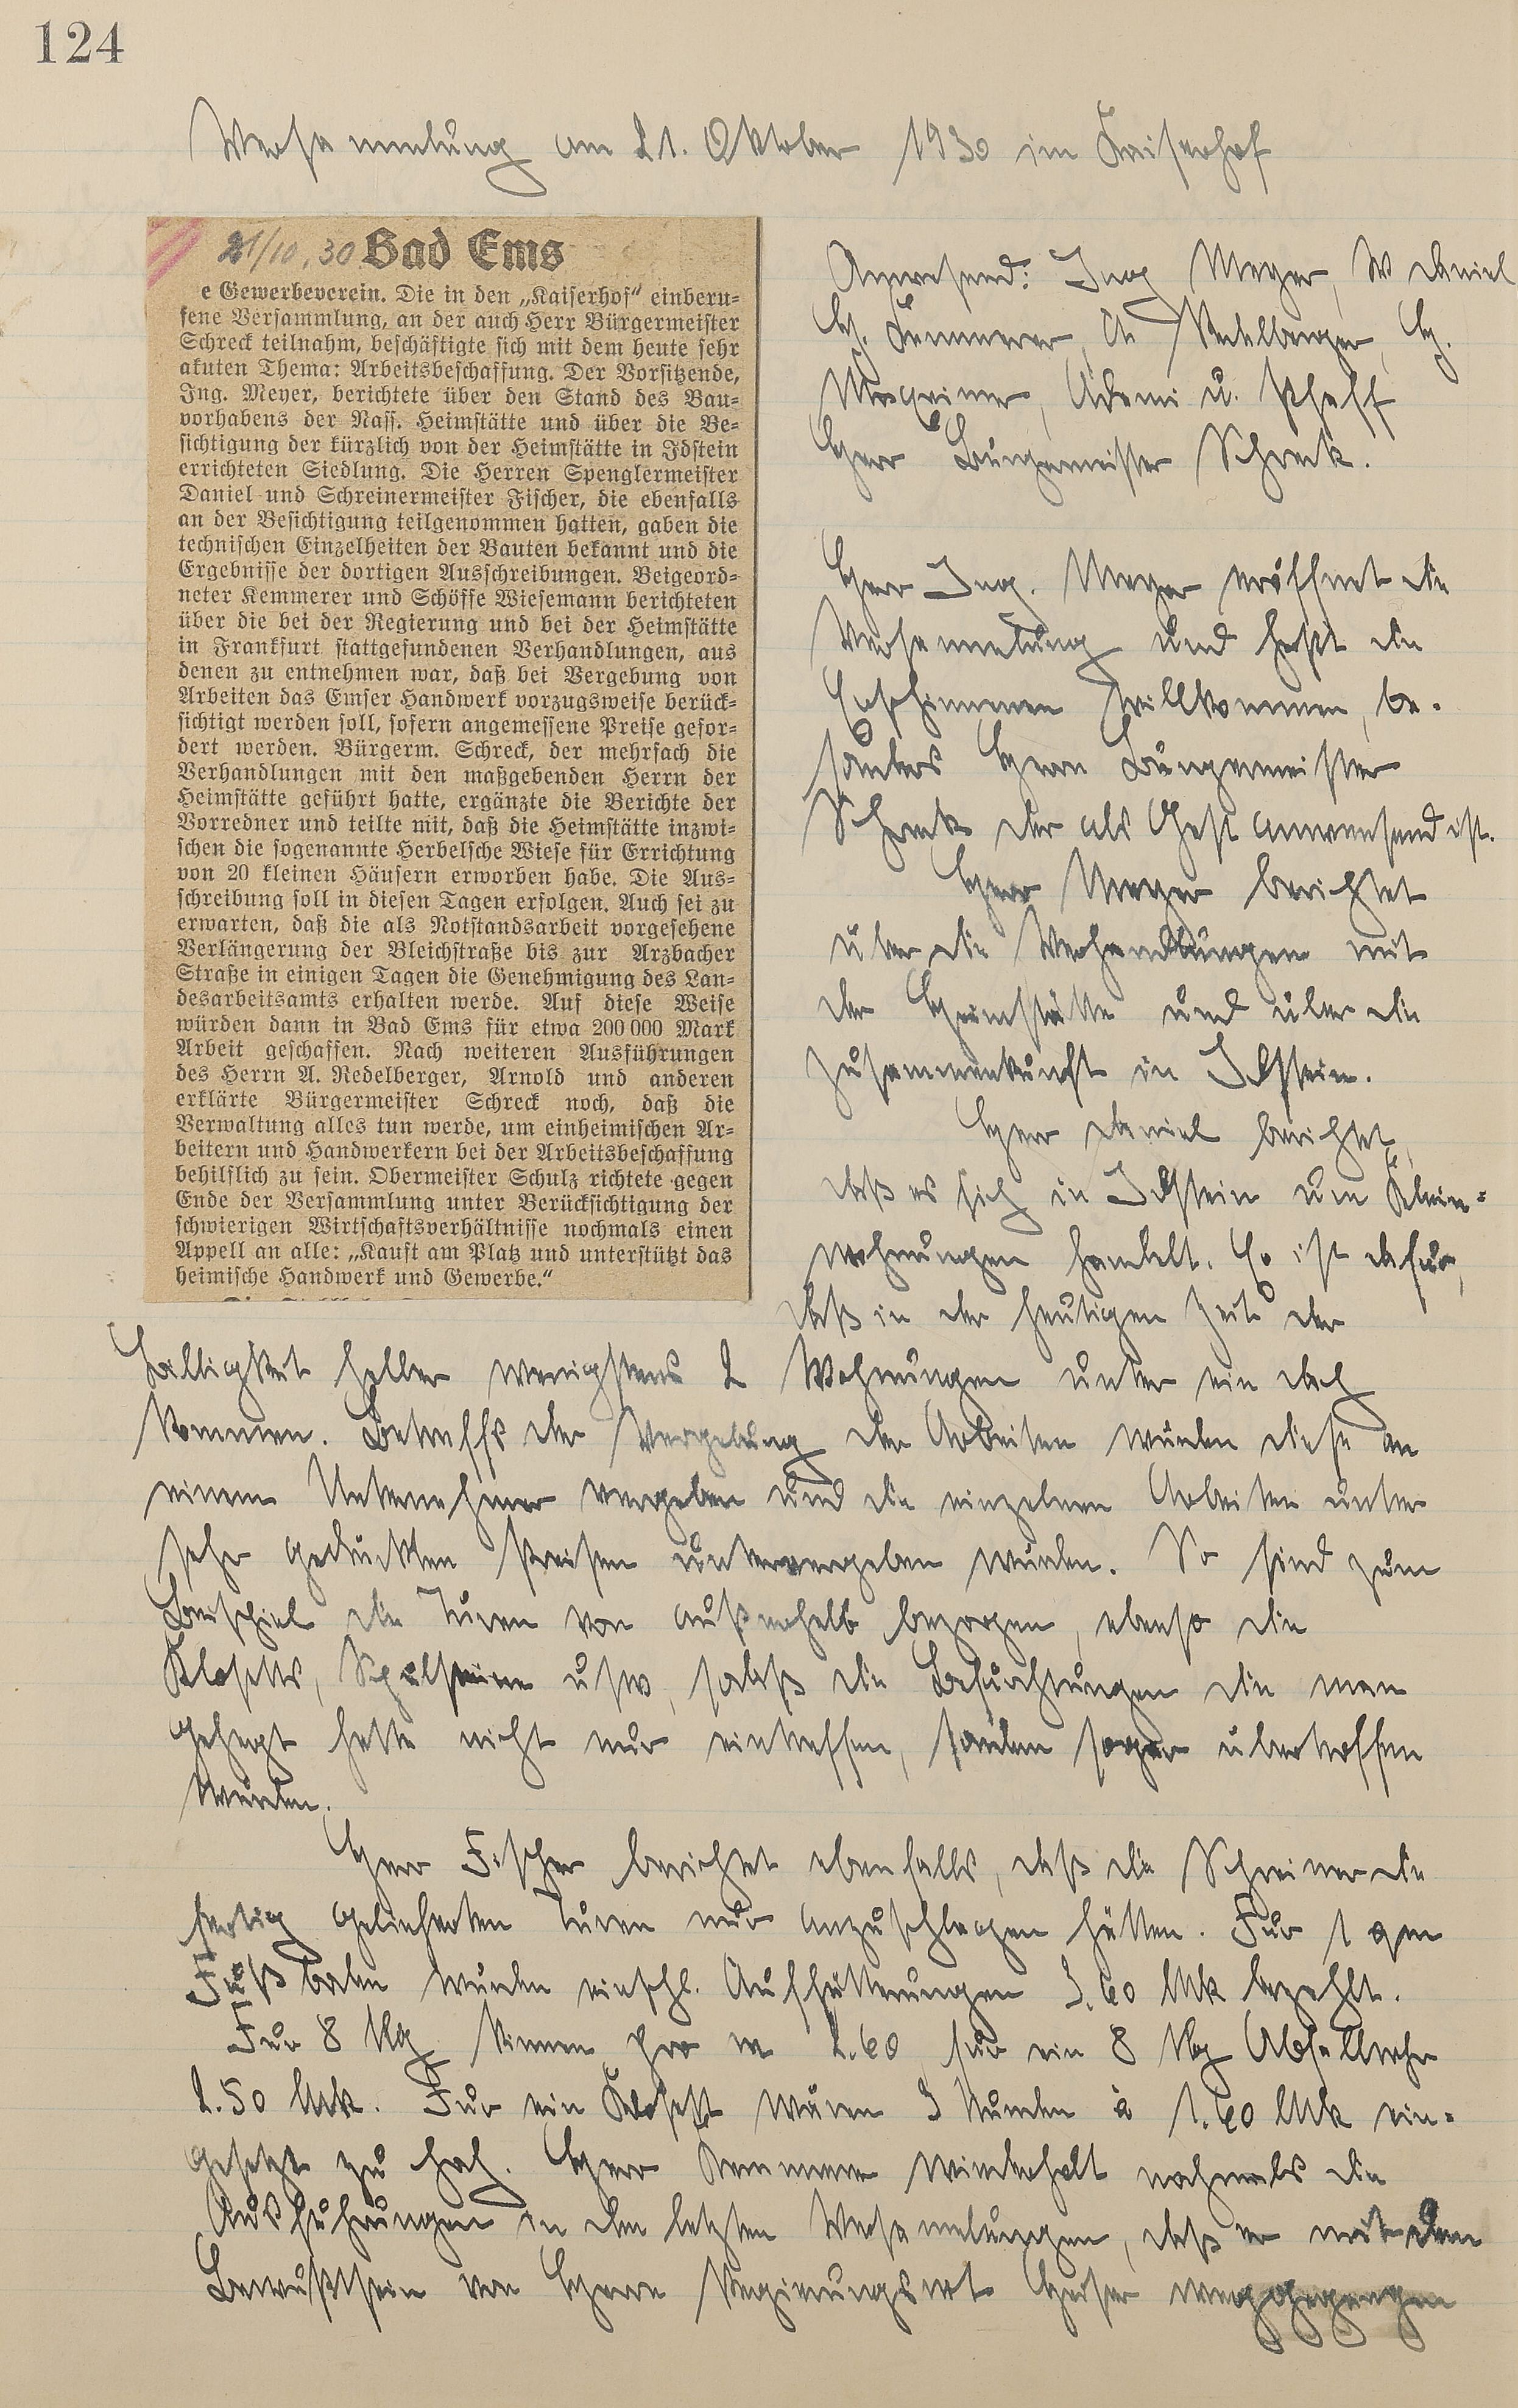 124
Versammlung am 21. Oktober 1930 im Kaiserhof
21/10.30 Bad Ems
e Gewerbeverein. Die in den „Kaiserhof“ einberu-
fene Versammlung, an der auch Herr Bürgermeister
Schreck teilnahm, beschäftigte sich mit dem heute sehr
akuten Thema: Arbeitsbeschaffung. Der Vorsitzende,
Ing. Meyer, berichtete über den Stand des Bau-
vorhabens der Nass. Heimstätte und über die Be-
sichtigung der kürzlich von der Heimstätte in Idstein
errichteten Siedlung. Die Herren Spenglermeister
Daniel und Schreinermeister Fischer, die ebenfalls
an der Besichtigung teilgenommen hatten, gaben die
technischen Einzelheiten der Bauten bekannt und die
Ergebnisse der dortigen Ausschreibungen. Beigeord-
neter Kemmerer und Schöffe Wiesemann berichteten
über die bei der Regierung und bei der Heimstätte
in Frankfurt stattgefundenen Verhandlungen, aus
denen zu entnehmen war, daß bei Vergebung von
Arbeiten das Emser Handwerk vorzugsweise berück-
sichtigt werden soll, sofern angemessene Preise gefor-
dert werden. Bürgerm. Schreck, der mehrfach die
Verhandlungen mit den maßgebenden Herrn der
Heimstätte geführt hatte, ergänzte die Berichte der
Vorredner und teilte mit, daß die Heimstätte inzwi-
schen die sogenannte Herbelsche Wiese für Errichtung
von 20 kleinen Häusern erworben habe. Die Aus-
schreibung soll in diesen Tagen erfolgen. Auch sei zu
erwarten, daß die als Notstandsarbeit vorgesehene
Verlängerung der Bleichstraße bis zur Arzbacher
Straße in einigen Tagen die Genehmigung des Lan-
desarbeitsamts erhalten werde. Auf diese Weise
würden dann in Bad Ems für etwa 200 000 Mark
Arbeit geschaffen. Nach weiteren Ausführungen
des Herrn A. Redelberger, Arnold und anderen
erklärte Bürgermeister Schreck noch, daß die
Verwaltung alles tun werde, um einheimischen Ar-
beitern und Handwerkern bei der Arbeitsbeschaffung
behilflich zu sein. Obermeister Schulz richtete gegen
Ende der Versammlung unter Berücksichtigung der
schwierigen Wirtschaftsverhältnisse nochmals einen
Appell an alle: „Kauft am Platz und unterstützt das
heimische Handwerk und Gewerbe.“
Anwesend: Ing Meyer, W Daniel
H. Kemmerer, A Redelberger, H.
Ademi u. Pfaff
Herr Bürgermeister Schreck.
Herr Ing. Meyer eröffnet die
Versammlung und heißt die
Erschienenen willkommen, be-
sonders Herrn Bürgermeister
Schreck der als Gast anwesend ist.
Herr Meyer berichtet
über die Verhandlungen mit
der Heimstätte und über die
Zusammenkunft in Idstein.
Herr Daniel berichtet,
daß es sich in Idstein um Klein-
wohnungen handelt. Er ist dafür,
daß in der heutigen Zeit der
Billigkeit halber wenigstens 2 Wohnungen unter ein Dach
kommen. Betreffs der Vergebung der Arbeiten wurden diese an
einem Unternehmer vergeben und die einzelnen Arbeiten unter
sehr gedrückten Preisen untervergeben wurden. So sind zum
Beispiel die Türen von außerhalb bezogen, ebenso die
Klosetts, Spülsteine usw, sodaß die Befürchtungen die man
gehegt hatte nicht nur eintreffen, sondern sogar übertroffen
wurden.
Herr Fischer berichtet ebenfalls, daß die Schreiner die
fertig gelieferten Türen nur anzuschlagen hätten. Für 1 qm
Fußboden wurden einschl. Auffütterungen 3.60 Mk bezahlt.
Für 8 Rinnen pro m 2.60 für ein 8 Abfallrohr
2.50 Mk. Für ein Klosett wären 3 Stunden à 1.60 Mk ein-
gesetzt zu Herr Kemmerer wiederholt nochmals die
Ausführungen in den letzten Versammlungen, daß er mit dem
Bewußtsein von Herrn Regierungsrat weggegangen